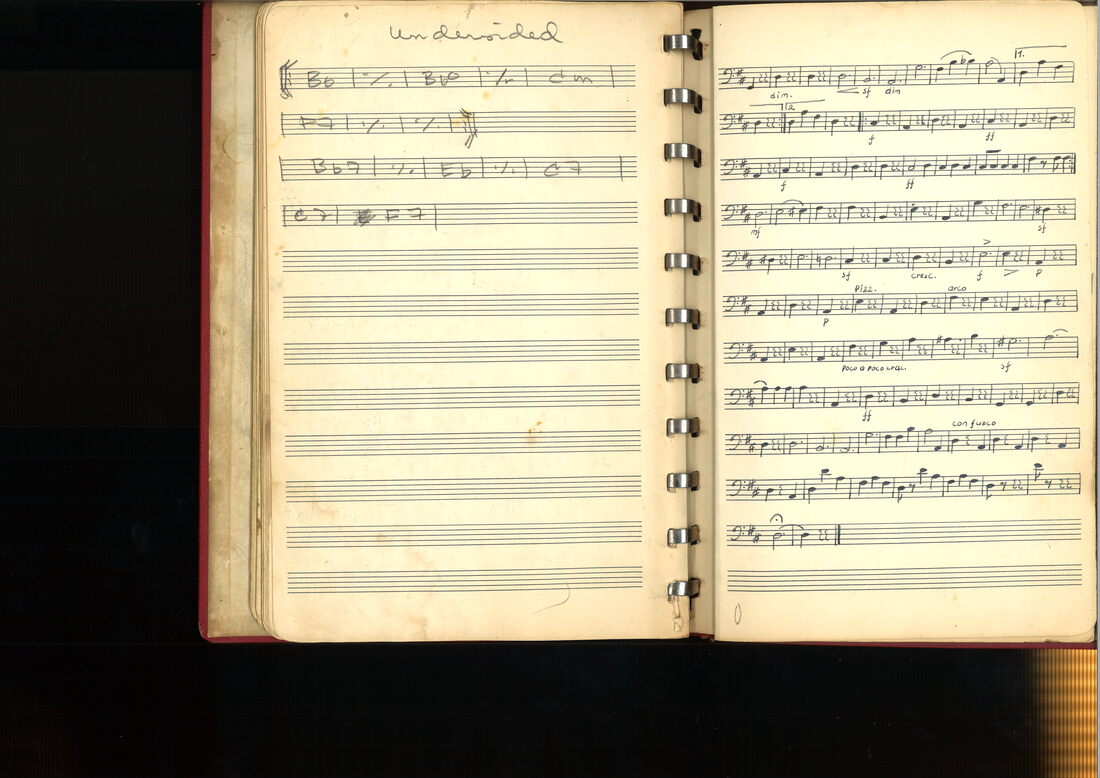 Undersided
Bb | ٪ | Bbo | ٪ | Cm
F7 | ٪ | ٪
Bb7 | ٪ | Eb | ٪ | C7
C7 | F7
1.
dim. sf dim
2.
f ff
f ff
mf sf
sf cresc. f > p
pizz. arco
p
poco a poco cresc. sf
ff
con fuoco